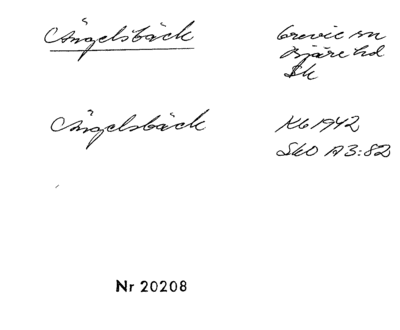 Ängelsbäck
Grevie sn
Bjäre hd
Sk
Ängelsbäck
KG 1942
SkO A3:82
Nr 20208